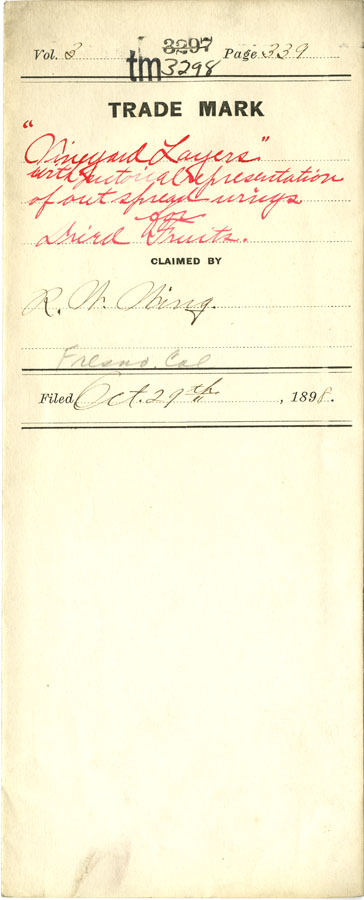 3297
Vol. 3 tm 3298 Page 339
TRADE MARK
"Vineyard Layers"
with pictorial representation
of out spread wings
for
Dried Fruits.
CLAIMED BY
R. W. Wing.
Fresno, Cal
Filed Oct. 29th, 1898.